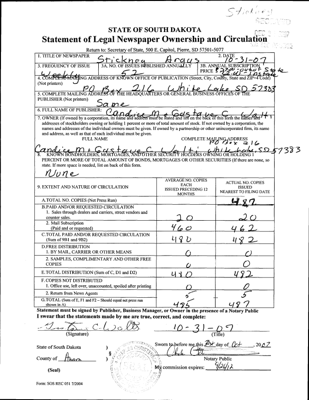 STATE OF SOUTH DAKOTA
Statement of Legal Newspaper Ownership and Circulation
Return to: Secretary of State, 500 E. Capitol, Pierre, SD 57501-5077
1. TITLE OF NEWSPAPER Stickney Argus 2. DATE 10-31-07
3. FREQUENCY OF ISSUE Weekly 3A. NO. OF ISSUES PUBLISHED ANNUALLY 52 3B. ANNUAL SUBSCRIPTION PRICE
4. COMPLETE MAILING ADDRESS OF KNOWN OFFICE OF PUBLICATION (Street, City, County, State and Zip+4 Code)
(Not printers) PO Box 216 White Lake, SD 57383
5. COMPLETE MAILING ADDRESS OF THE HEADQUARTERS OR GENERAL BUSINESS OFFICES OF THE
PUBLISHER (Not printers) Same
6. FULL NAME OF PUBLISHER:
7. OWNER (If owned by a corporation, its name and address must be stated and on the back of this form the names and
addresses of stockholders owning or holding 1 percent or more of total amount of stock. If not owned by a corporation, the
names and addresses of the individual owners must be given. If owned by a partnership or other unincorporated firm, its name
and address, as well as that of each individual must be given.
FULL NAME COMPLETE MAILING ADDRESS
PO Box 216
White Lake, SD 57383
8. KNOWN BONDHOLDERS, MORTGAGEES, AND OTHER SECURITY HOLDERS OWNING OR HOLDING 1
PERCENT OR MORE OF TOTAL AMOUNT OF BONDS, MORTGAGES OR OTHER SECURITIES (If there are none, so
state. If more space is needed, list on back of this form.
None
9. EXTENT AND NATURE OF CIRCULATION
AVERAGE NO. COPIES EACH ISSUED PRECEDING 12 MONTHS
ACTUAL NO. COPIES ISSUED NEAREST TO FILING DATE
A. TOTAL NO. COPIES (Net Press Run) 487
B. PAID AND/OR REQUESTED CIRCULATION
1. Sales through dealers and carriers, street vendors and
counter sales. 20 20
2. Mail Subscription
(Paid and or requested) 460 462
C. TOTAL PAID AND/OR REQUESTED CIRCULATION
(Sum of 9B1 and 9B2) 480 482
D. FREE DISTRIBUTION
1. BY MAIL, CARRIER OR OTHER MEANS 0 0
2. SAMPLES, COMPLIMENTARY AND OTHER FREE
COPIES 0 0
E. TOTAL DISTRIBUTION (Sum of C, D1 and D2) 480 482
F. COPIES NOT DISTRIBUTED
1. Office use, left over, unaccounted, spoiled after printing 0 0
2. Return from News Agents 5 5
G. TOTAL (Sum of E, F1 and F2 - Should equal net press run
shown in A) 485 487
Statement must be signed by Publisher, Business Manager, or Owner in the presence of a Notary Public
I swear that the statements made by me are true, correct, and complete:
10-31-07
(Signature) (Title)
State of South Dakota )
County of )§
(Seal)
Sworn to before me this day of Oct 2007
Notary Public
My commission expires:
Form: SOS REC 051 7/2004